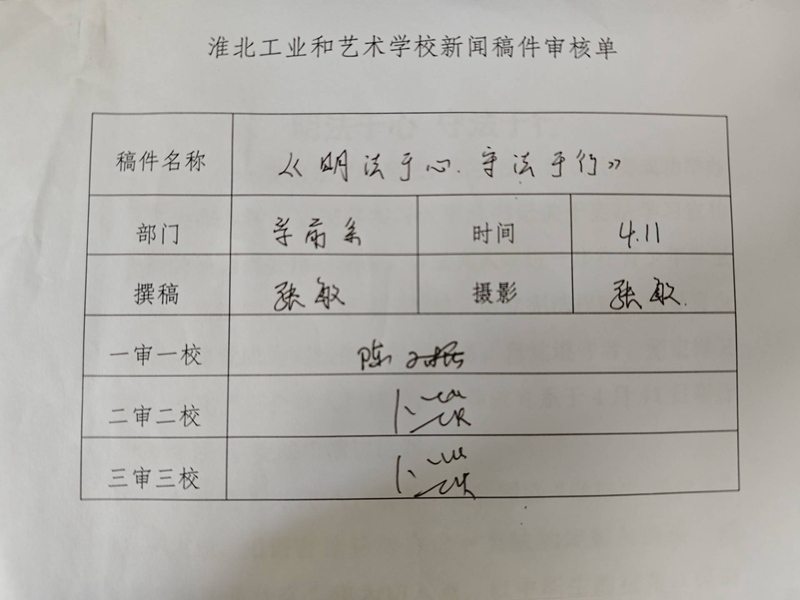 淮北工业和艺术学校新闻稿件审核单
稿件名称 《明法于心.守法于行》
部门 学前系 时间 4.11
撰稿 张敏 摄影 张敏
一审一校 陈
二审二校
三审三校